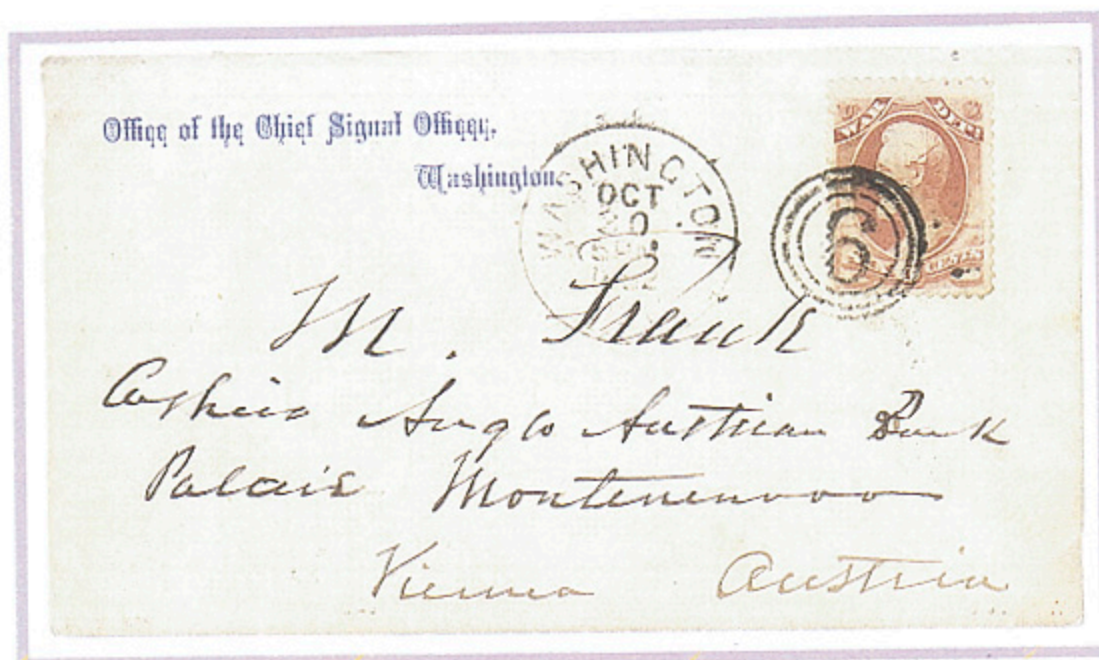 Office of the Chief Signal Officer,
Washington.
WASHINGTON
OCT
WAR DEPT.
6
CENTS
M. Frank
Cashier Anglo Austrian Bank
Palais Montenuovo
Vienna Austria